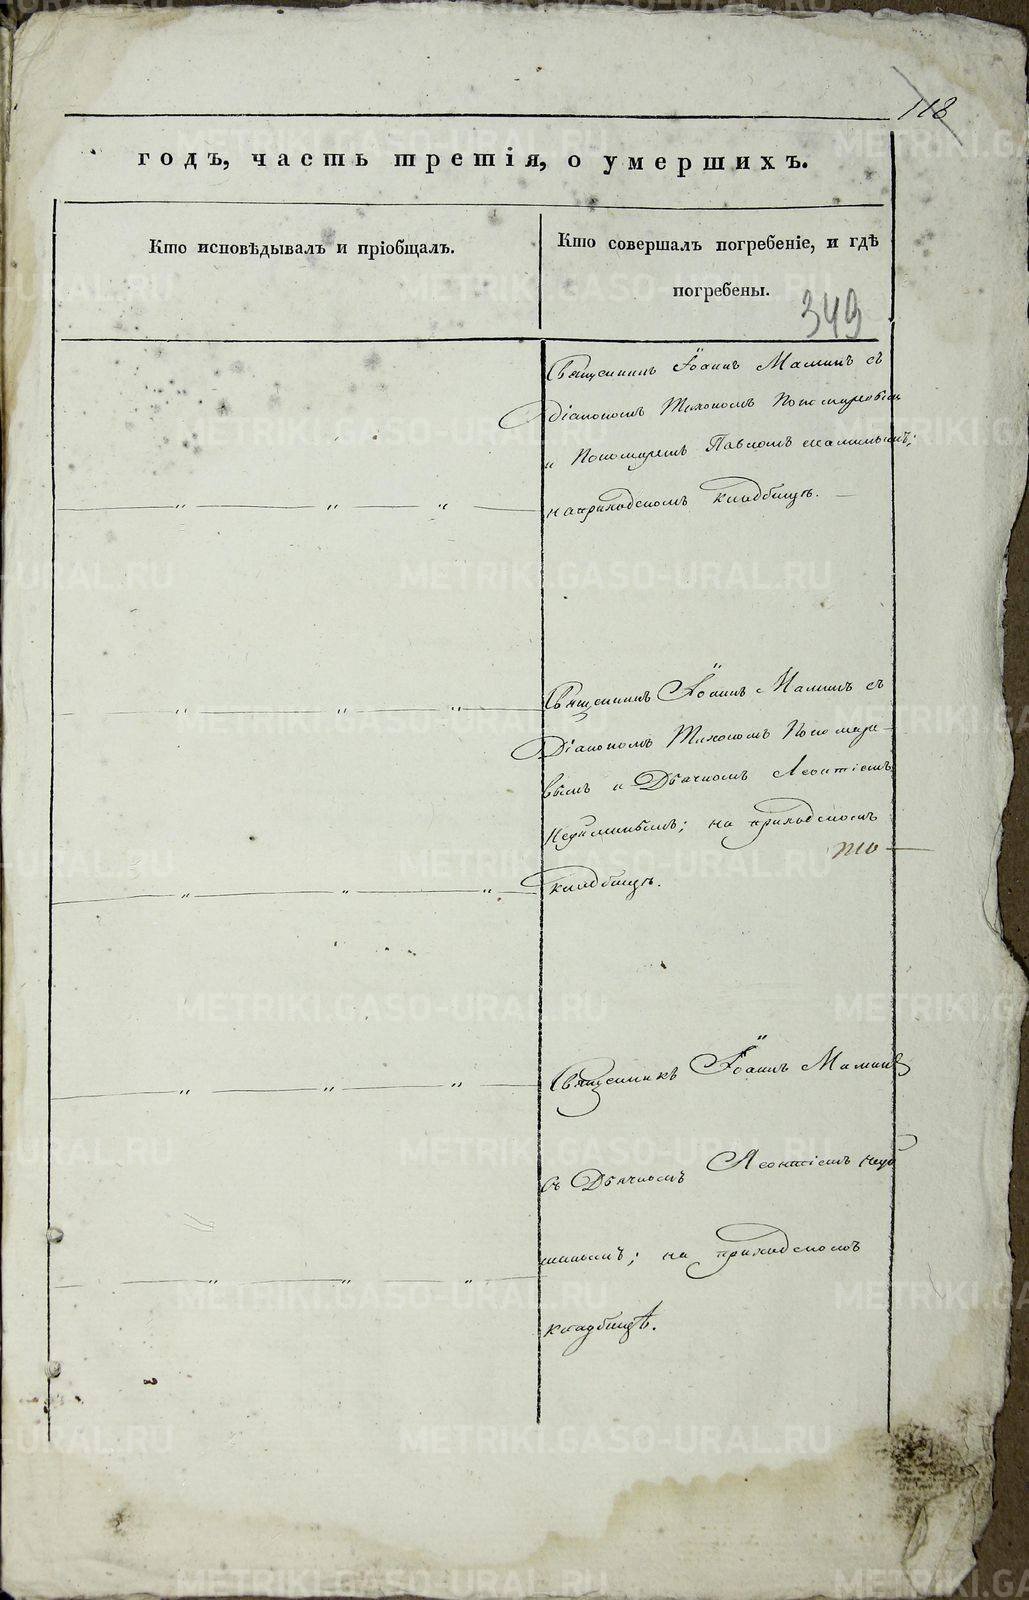 118
годъ, часть третія, о умершихъ.
Кто исповѣдывалъ и пріобщалъ.
Кто совершалъ погребеніе, и гдѣ
погребены.
349
Священникъ Іоаннъ Маминъ съ
Діакономъ Тихономъ
и Пономаремъ Павломъ
на приходскомъ кладбищѣ.
Священникъ Іоаннъ Маминъ съ
Діакономъ Тихономъ Пономаре-
вымъ и Дьячкомъ Леонтіемъ
на приходскомъ
кладбищѣ.
Священникъ Іоаннъ Маминъ
съ Дьячкомъ Леонтіемъ
на приходскомъ
кладбищѣ.
METRIKI.GASO-URAL.RU